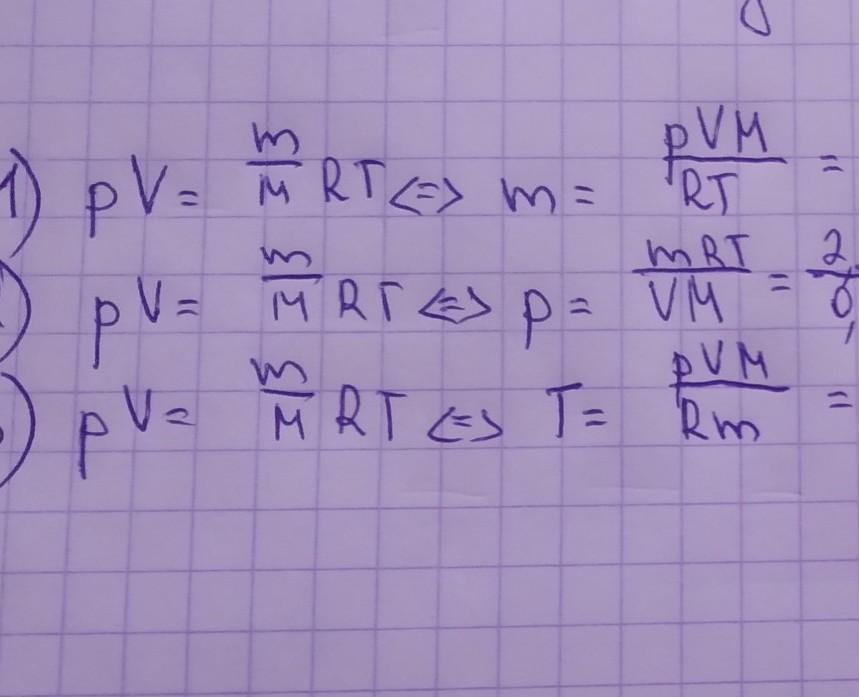 1) pV = m/M RT <=> m = pVM/RT =
) pV = m/M RT <=> p = mRT/VM = 2/0,
) pV = m/M RT <=> T = pVM/Rm =